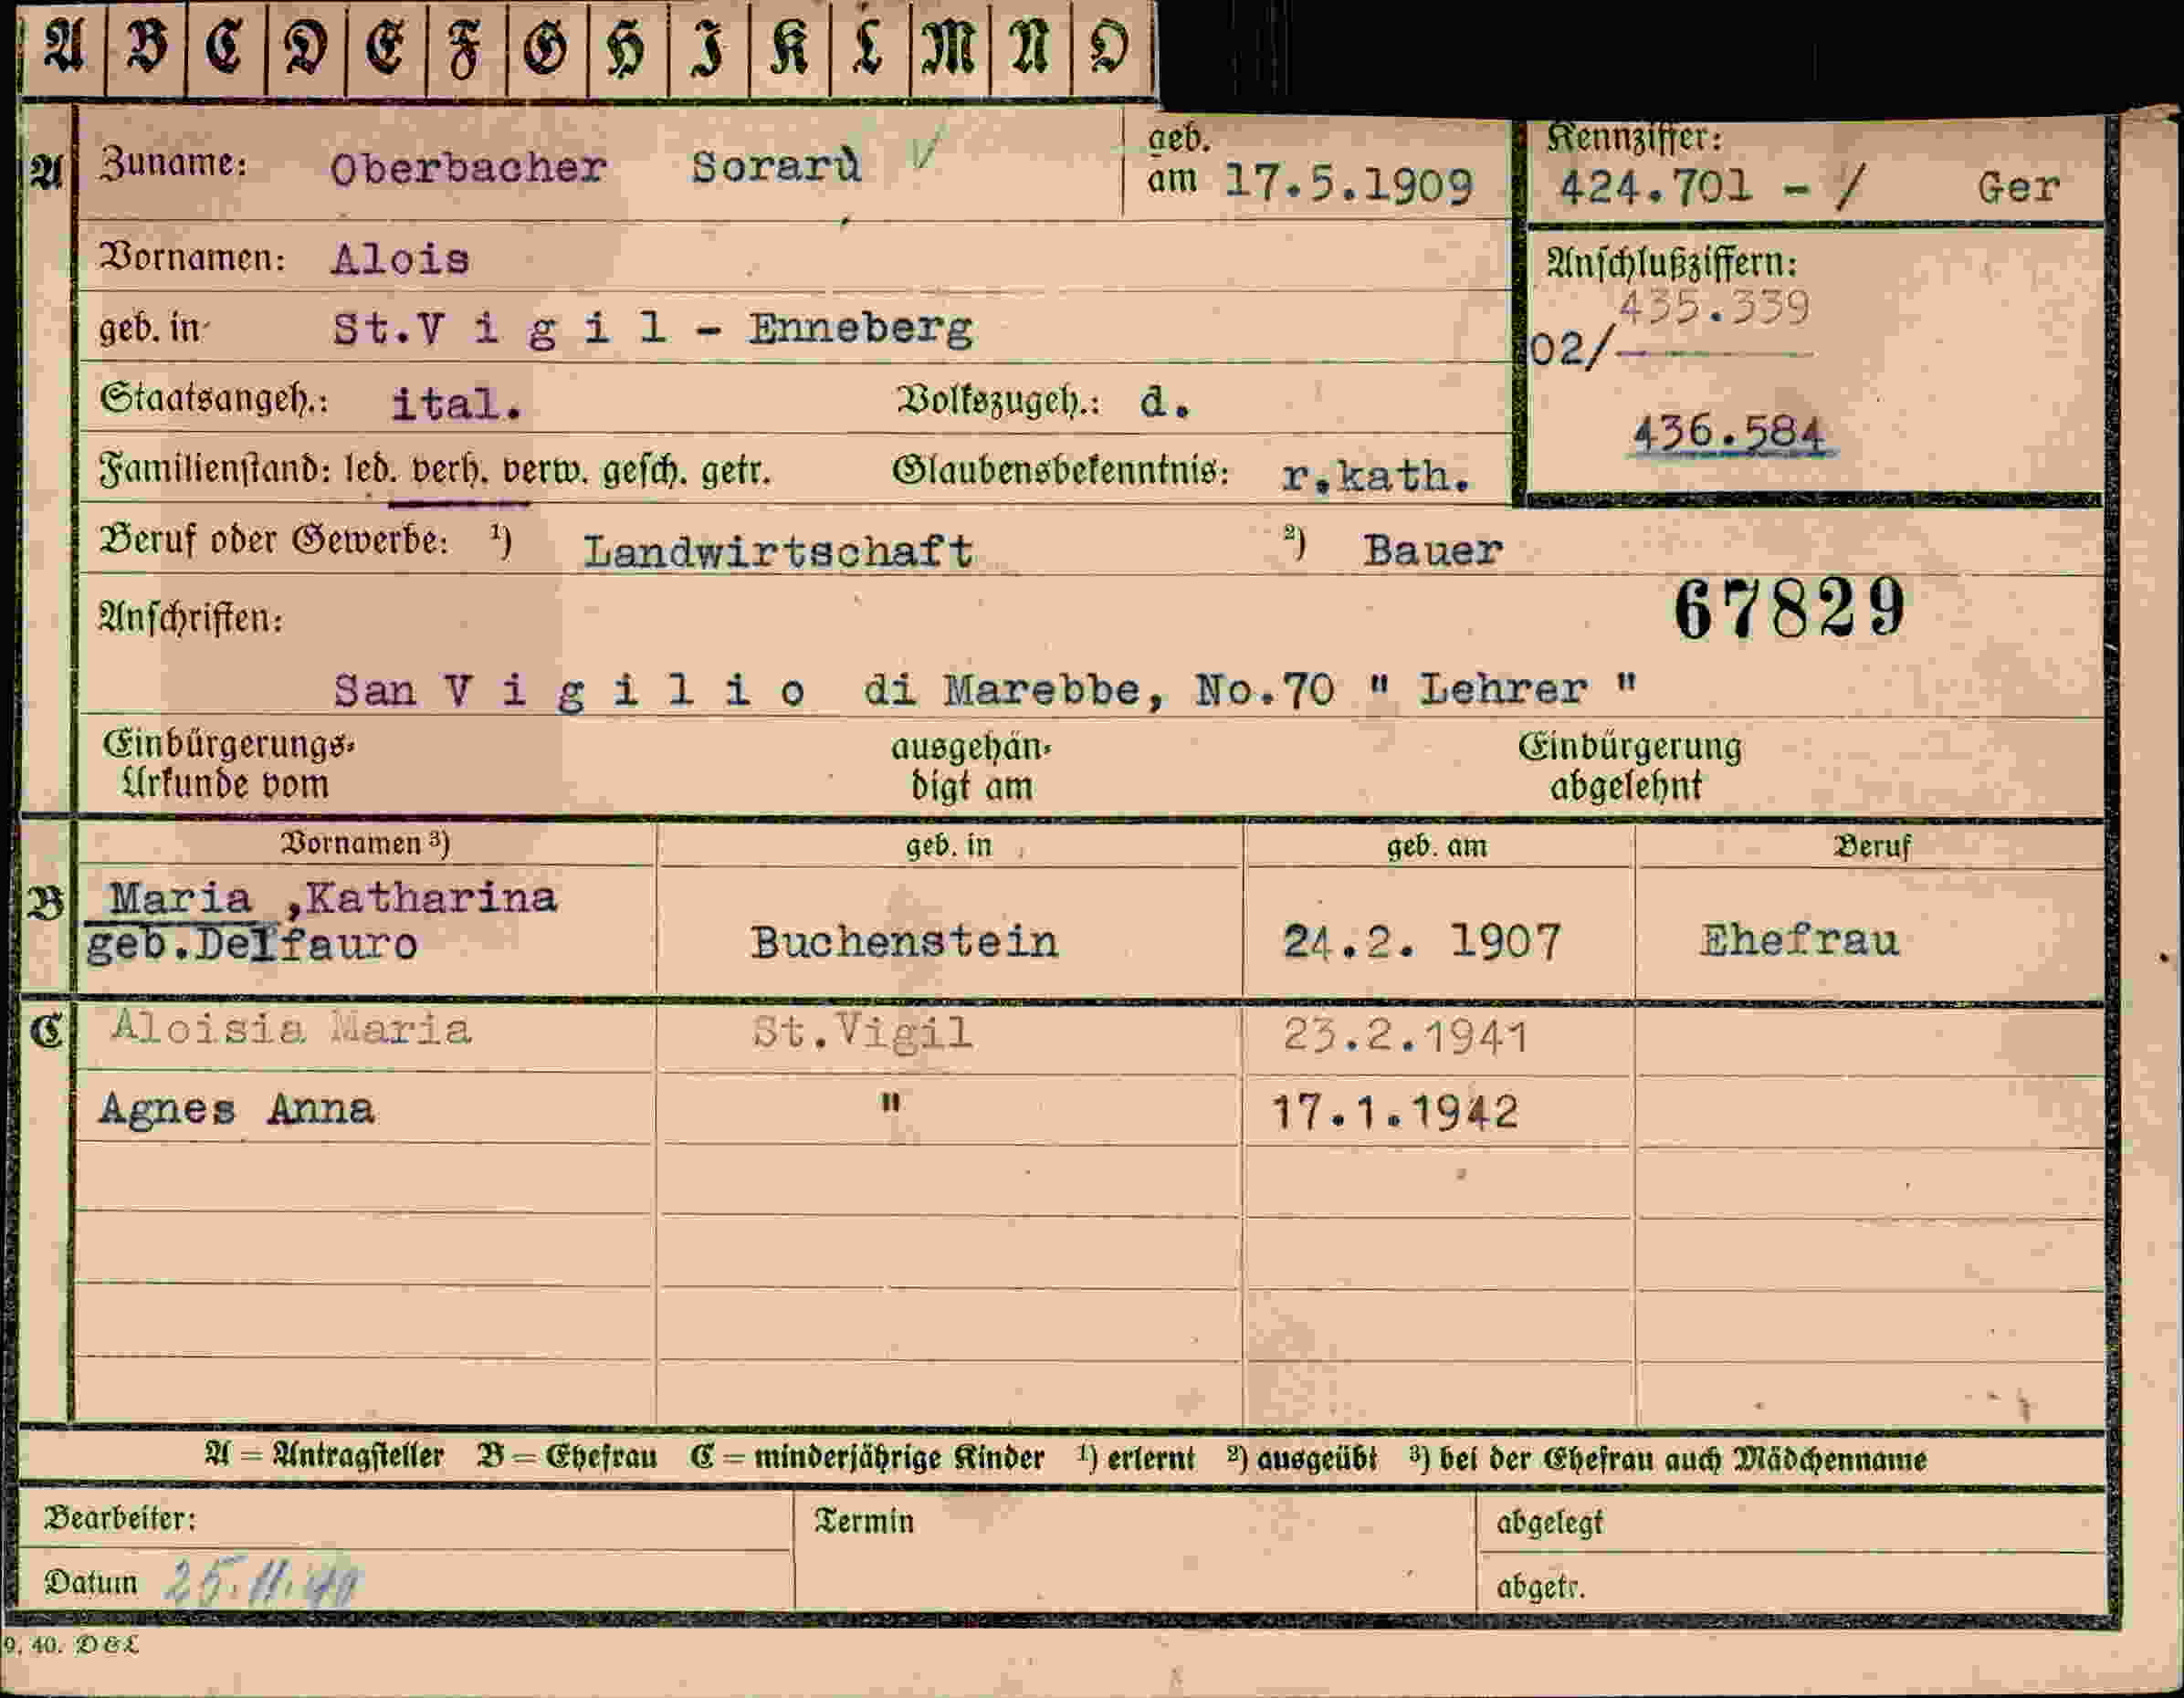 A B C D E F G H I K L M N O
A Zuname: Oberbacher Sorarù geb. am 17.5.1909
Kennziffer: 424.701 - / Ger
Vornamen: Alois
Anschlußziffern:
435.339
geb. in St.V i g i l - Enneberg
02/
Staatsangeh.: ital. Volkszugeh.: d.
436.584
Familienstand: led. verh. verw. gesch. getr. Glaubensbekenntnis: r.kath.
Beruf oder Gewerbe: ¹) Landwirtschaft ²) Bauer
67829
Anschriften:
San V i g i l i o di Marebbe, No.70 " Lehrer "
Einbürgerungs- ausgehän- Einbürgerung
Urkunde vom digt am abgelehnt
Vornamen ³) geb. in geb. am Beruf
B Maria ,Katharina
geb.Delfauro Buchenstein 24.2. 1907 Ehefrau
C Aloisia Maria St.Vigil 23.2.1941
Agnes Anna " 17.1.1942
A = Antragsteller B = Ehefrau C = minderjährige Kinder ¹) erlernt ²) ausgeübt ³) bei der Ehefrau auch Mädchenname
Bearbeiter: Termin abgelegt
Datum 25.11.40 abgetr.
9. 40. D&L